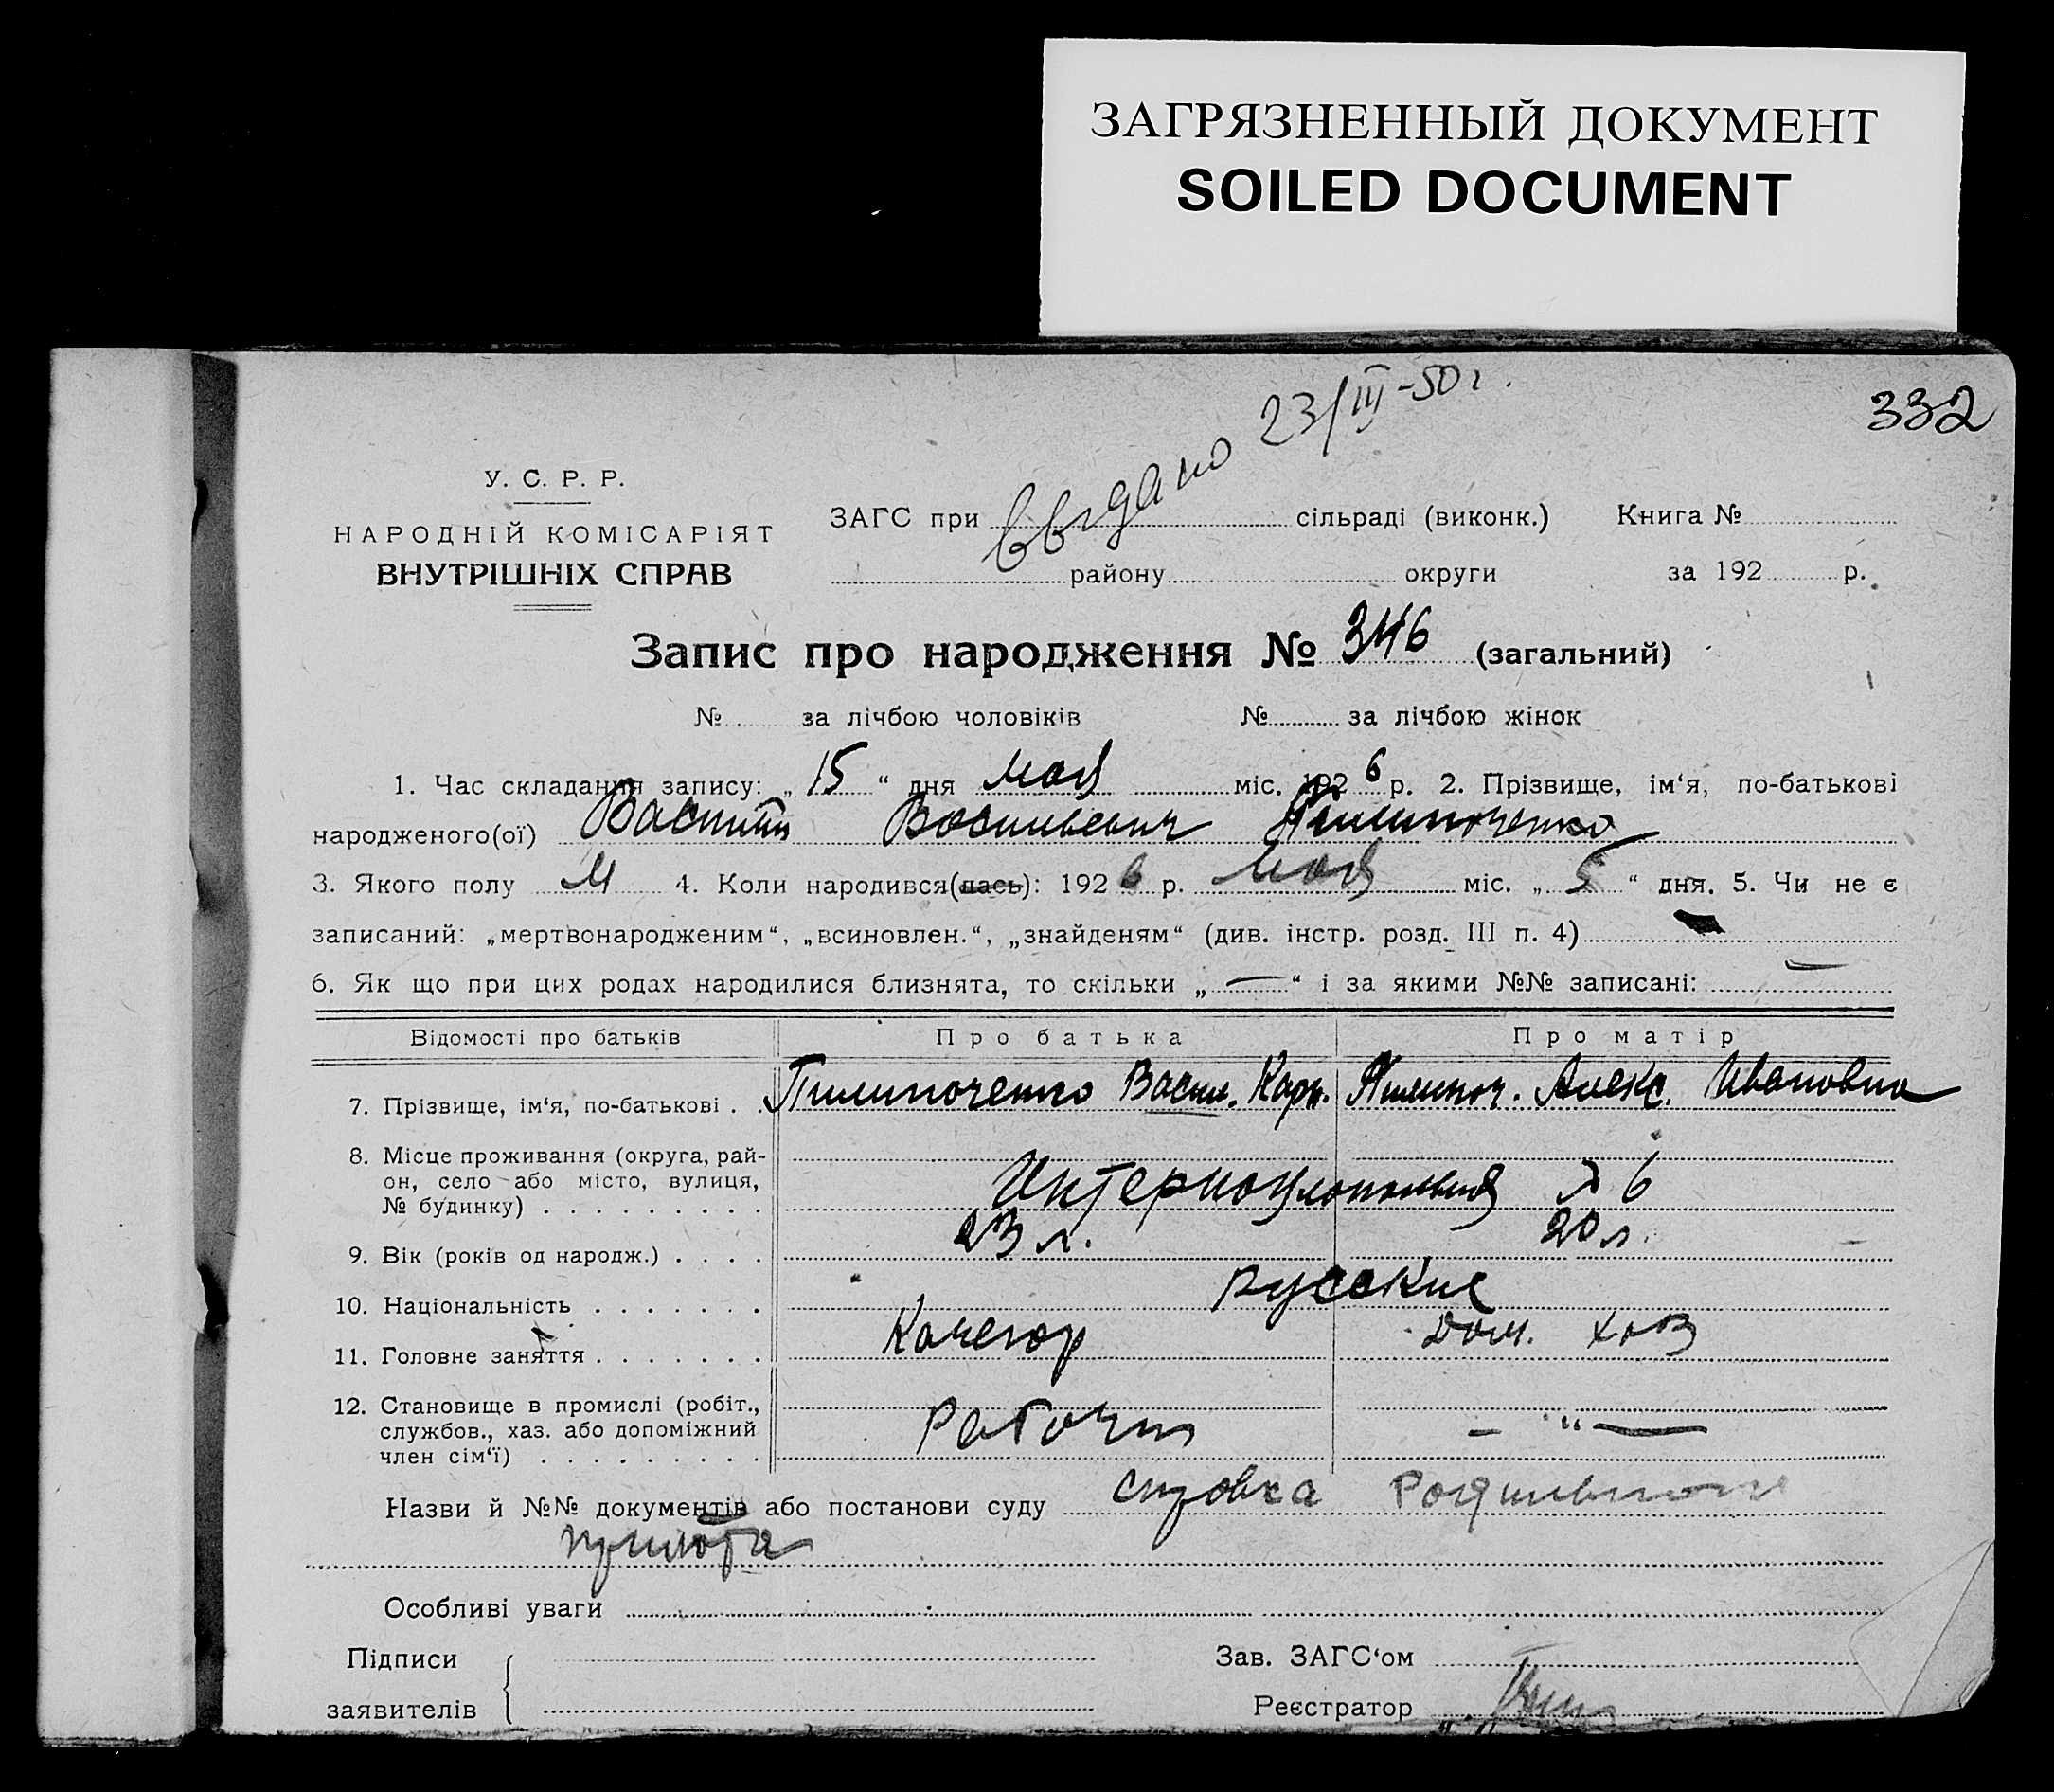 ЗАГРЯЗНЕННЫЙ ДОКУМЕНТ
SOILED DOCUMENT
выдано 23/III-50 г.
332
У. С. Р. Р.
НАРОДНІЙ КОМІСАРІЯТ
ВНУТРІШНІХ СПРАВ
ЗАГС при сільраді (виконк.) Книга №
району округи за 192 р.
Запис про народження № 346 (загальний)
№ за лічбою чоловіків № за лічбою жінок
1. Час складання запису: „ 15 “ дня мая міс. 1926 р. 2. Прізвище, ім‘я, по-батькові
народженого(ої) Василий Васильевич Пилипоченко
3. Якого полу М 4. Коли народився(лась): 1926 р. мая міс. „ 5 “ дня. 5. Чи не є
записаний: „мертвонародженим“, „всиновлен.“, „знайденям“ (див. інстр. розд. III п. 4)
6. Як що при цих родах народилися близнята, то скільки „ — “ і за якими №№ записані: —
Відомості про батьків Про батька Про матір
7. Прізвище, ім‘я, по-батькові . . Пилипоченко Васил. Карп. Пилипоч. Алекс. Ивановна
8. Місце проживання (округа, рай-
он, село або місто, вулиця,
№ будинку) . . . . . . . . . Интернациональная № 6
9. Вік (років од народж.) . . . . 23 л. 20 л.
10. Національність . . . . . . . русские
11. Головне заняття . . . . . . . Кочегар Дом. хоз
12. Становище в промислі (робіт.,
службов., хаз. або допоміжний
член сім‘ї) . . . . . . . . . Рабочий — “ —
Назви й №№ документів або постанови суду справка Родильного
приюта
Особливі уваги
Підписи Зав. ЗАГС‘ом
заявителів Реєстратор